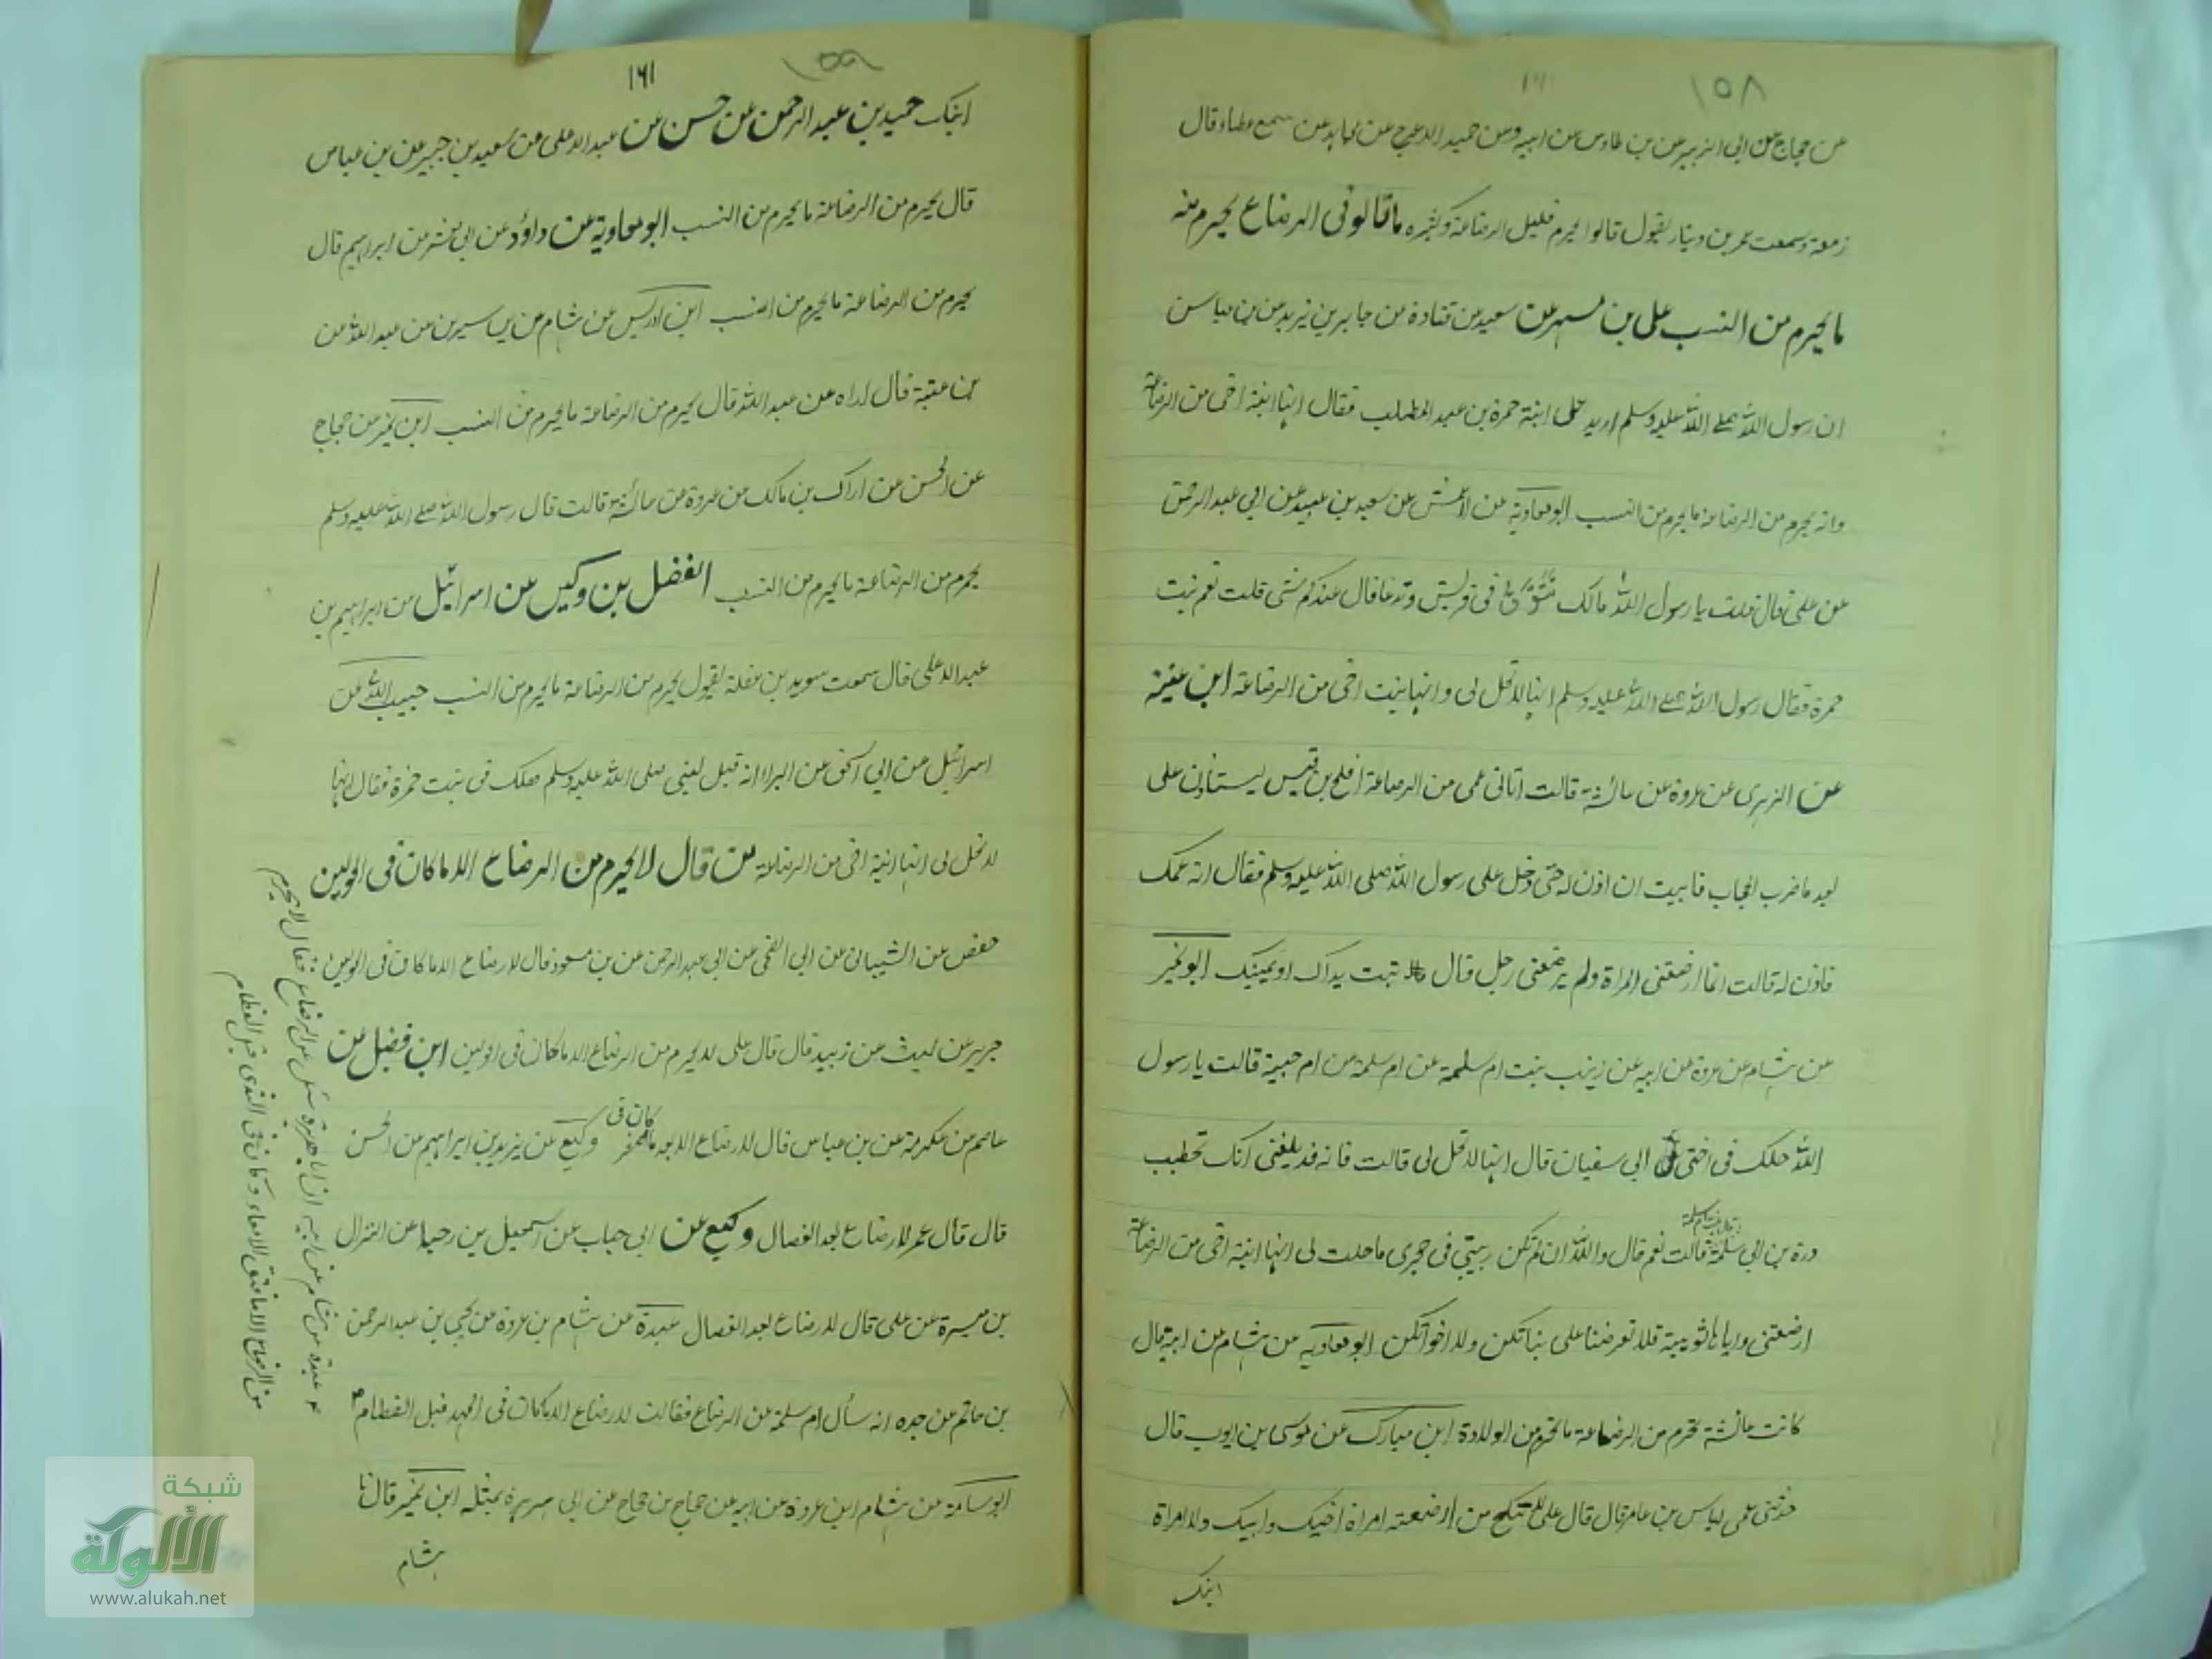 ١٥٨
عن حجاج عن ابى الزبير عن بن طاوس عن ابيه وعن حميد الاعرج عن مجاهد عن سمع عطاء قال
زمعة وسمعت عمر بن دينار يقول قالوا يحرم قليل الرضاعة وكثيره ما قالوا فى الرضاع يحرم منه
ما يحرم من النسب على بن مسهر عن سعيد عن قتادة عن جابر بن زيد عن بن عباس
ان رسول الله صلى الله عليه وسلم اريد على ابنة حمزة بن عبد المطلب فقال انها ابنة اخى من الرضاعة
وانه يحرم من الرضاعة ما يحرم من النسب ابو معاوية عن الاعمش عن سعيد بن عبيد عن ابى عبد الرحمن
عن على قال قلت يا رسول الله مالك تتوق فى قريش وتدعنا قال عندكم شئ قلت نعم بنت
حمزة فقال رسول الله صلى الله عليه وسلم انها لا تحل لى وانها بنت اخى من الرضاعة ابن عيينة
عن الزهرى عن عروة عن عائشة قالت اتانى عمى من الرضاعة افلح بن قيس يستاذن على
بعد ما ضرب الحجاب فابيت ان اذن له حتى دخل على رسول الله صلى الله عليه وسلم فقال انه عمك
فاذن له قالت انما ارضعتنى المراة ولم يرضعنى رجل قال تربت يداك او يمينك ابو نمير
عن هشام عن عروة عن ابيه عن زينب بنت ام سلمة عن ام سلمة عن ام حبيبة قالت يا رسول
الله هل لك فى اختى ابى سفيان قال انها لا تحل لى قالت فانه قد بلغنى انك تخطب
درة بن ابى سلمة قالت نعم قال والله ان لم تكن ربيبتى فى حجرى ما حلت لى انها ابنة اخى من الرضاعة
ارضعتنى واياها ثويبة فلا تعرضنا على بناتكن ولا اخواتكن ابو معاوية عن هشام عن ابيه قال
كانت عائشة تحرم من الرضاعة ما تحرم من الولادة ابن مبارك عن موسى بن ايوب قال
حدثنى عمى اياس بن عامر قال قال على لا تنكح من ارضعته امراة اخيك وابيك ولا امراة
ابنك
١٥٩
١٦١
ابنك حميد بن عبد الرحمن عن حسن عن عبد الاعلى عن سعيد بن جبير عن بن عباس
قال يحرم من الرضاعة ما يحرم من النسب ابو معاوية عن داؤد عن ابى معشر عن ابراهيم قال
يحرم من الرضاعة ما يحرم من النسب ابن ادريس عن هشام عن بن سيرين عن عبد الله عن
بن عتبة قال اراه عن عبد الله قال يحرم من الرضاعة ما يحرم من النسب ابن نمير عن حجاج
عن الحسن عن اراك بن مالك عن عروة عن عائشة قالت قال رسول الله صلى الله عليه وسلم
يحرم من الرضاعة ما يحرم من النسب الفضل بن وكيس عن اسرائيل عن ابراهيم بن
عبد الاعلى قال سمعت سويد بن غفلة يقول يحرم من الرضاعة ما يحرم من النسب حبيب الله عن
اسرائيل عن ابى اسحق عن البراء انه قيل يعنى صلى الله عليه وسلم هل لك فى بنت حمزة فقال انها
لا تحل لى انها ابنة اخى من الرضاعة من قال لا يحرم من الرضاع الا ما كان فى الحولين
حفص عن الشيبانى عن ابى الضحى عن ابى عبد الرحمن عن بن مسعود قال لا رضاع الا ما كان فى الحولين
جرير عن ليث عن زبيد قال قال على لا يحرم من الرضاع الا ما كان فى الحولين ابن فضل عن
عاصم عن عكرمة عن بن عباس قال لا رضاع الا ما كان فى الصغر وكيع عن يزيد بن ابراهيم عن الحسن
قال قال عمر لا رضاع بعد الفصال وكيع عن ابى جناب عن اسمعيل بن رجاء عن النزال
بن ميسرة عن على قال لا رضاع بعد الفصال عبدة عن هشام بن عروة عن يحيى بن عبد الرحمن
بن حاتم عن جده انه سأل ام سلمة عن الرضاع فقالت لا رضاع الا ما كان فى المهد قبل الفطام
ابو سامة عن هشام ابن عروة عن ابيه عن حجاج بن حجاج عن ابى هريرة بمثله ابن نمير قال نا
هشام
عبدة عن هشام عن ابيه ان ابا هريرة سئل عن الرضاع فقال لا يحرم
من الرضاع الا ما فتق الامعاء وكان فى الثدى قبل الفطام
شبكة
الألوكة
www.alukah.net